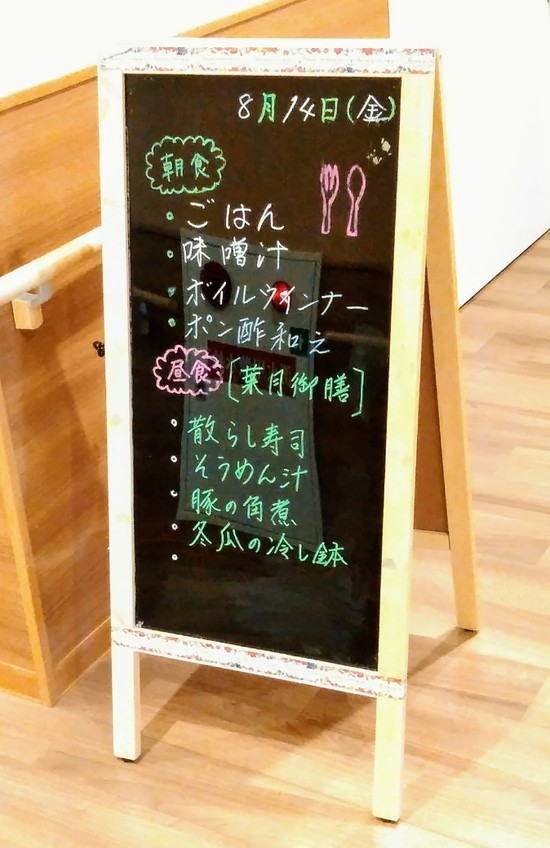 8月14日(金)
朝食
・ごはん
・味噌汁
・ボイルウインナー
・ポン酢和え
昼食 [葉月御膳]
・散らし寿司
・そうめん汁
・豚の角煮
・冬瓜の冷し鉢
・